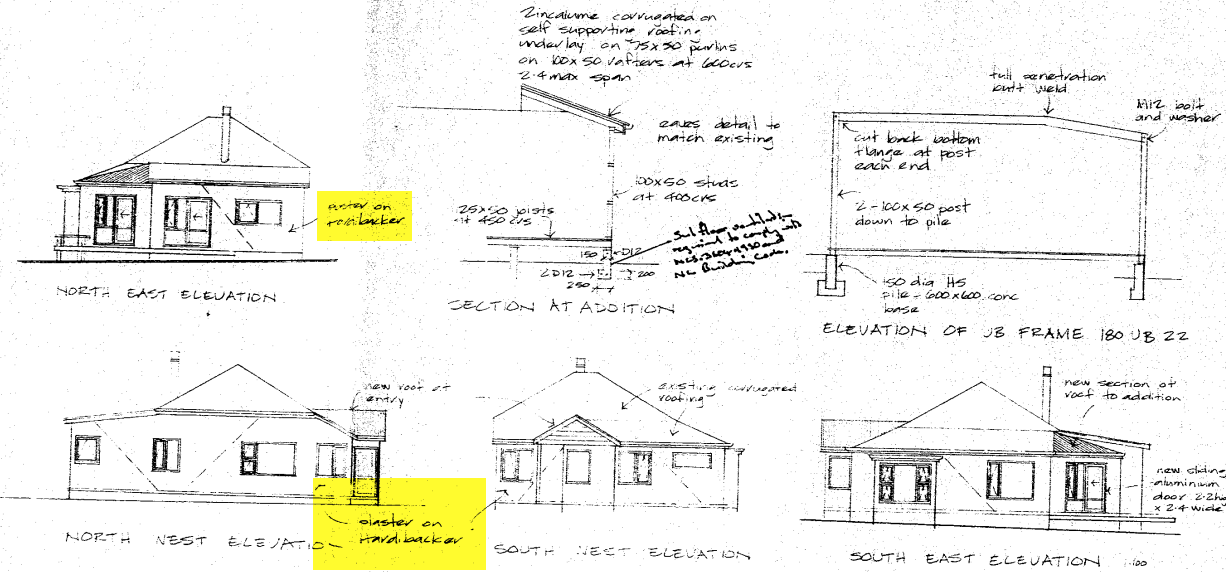 Zincalume corrugated on
self supporting roofing
underlay on 75x50 purlins
on 100x50 rafters at 600crs
2.4 max span
eaves detail to
match existing
100x50 studs
at 400crs
25x50 joists
at 450 crs
Sub floor ventilation
required to comply with
NZ Building Code.
150
D12
2D12
200
250
SECTION AT ADDITION
full penetration
butt weld
M12 bolt
and washer
cut back bottom
flange at post
each end
2-100x50 post
down to pile
150 dia HS
pile - 600x600 conc
base
ELEVATION OF UB FRAME 180 UB 22
aster on
hardibacker
NORTH EAST ELEVATION
new roof at
entry
plaster on
Hardibacker
NORTH WEST ELEVATION
existing corrugated
roofing
SOUTH WEST ELEVATION
new section of
roof to addition
new sliding
aluminium
door 2.2h
x 2.4 wide
SOUTH EAST ELEVATION 1:100